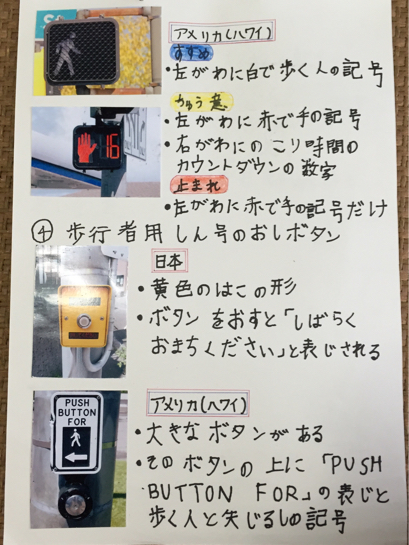 アメリカ(ハワイ)
すすめ
・左がわに白で歩く人の記号
ちゅう意
・左がわに赤で手の記号
・右がわにのこり時間の
カウントダウンの数字
止まれ
・左がわに赤で手の記号だけ
16
④歩行者用しん号のおしボタン
日本
・黄色のはこの形
・ボタンをおすと「しばらく
おまちください」と表じされる
アメリカ(ハワイ)
・大きなボタンがある
・そのボタンの上に「PUSH
BUTTON FOR」の表じと
歩く人と矢じるしの記号
PUSH
BUTTON
FOR